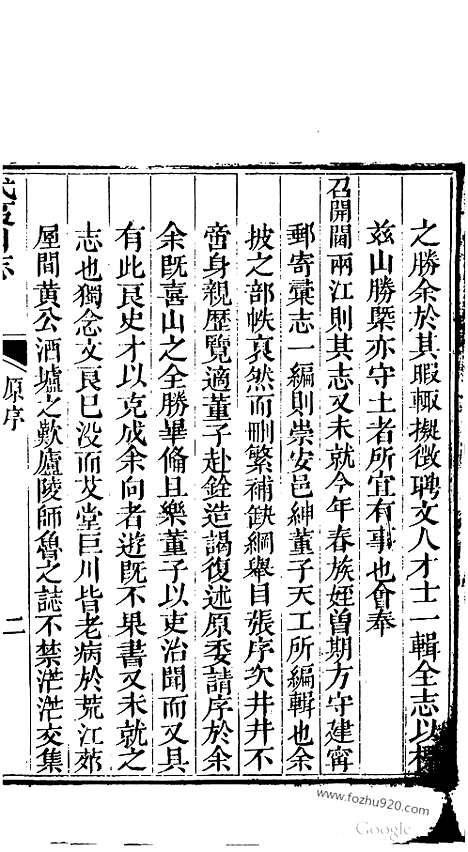 之勝余於其暇輒擬徵聘文人才士一輯全志以標
兹山勝槩亦守土者所宜有事也會奉
召開閫兩江則其志又未就今年春族姪曽期方守建寧
郵寄彚志一編則崇安邑紳董子天工所編輯也余
披之部帙裒然而刪繁補缺綱舉目張序次井井不
啻身親歴覽適董子赴銓造謁復述原委請序於余
余既喜山之全勝畢俻且樂董子以吏治聞而又具
有此良史才以克成余向者遊既不果書又未就之
志也獨念文良已没而艾堂巨川皆老病於荒江茆
屋間黄公酒壚之歎廬陵師魯之誌不禁茫茫交集
原序
二
www.fozhu920.com
Google